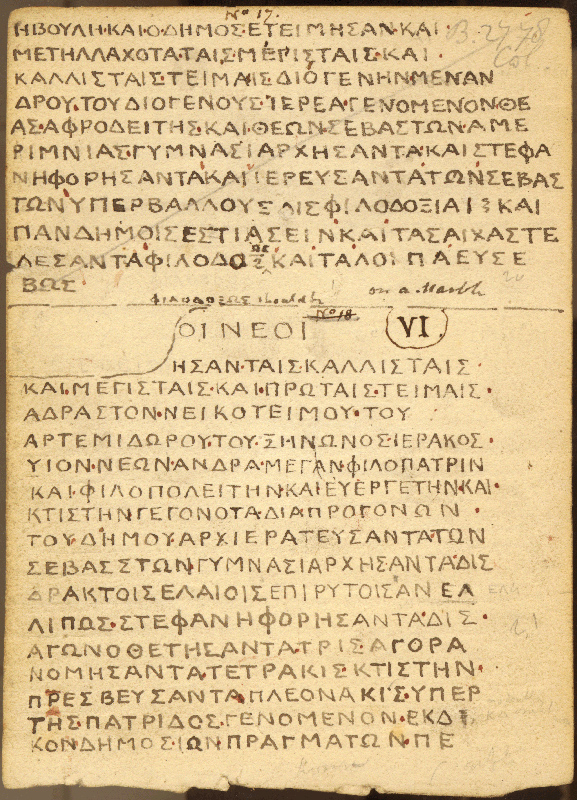 No 17.
Η ΒΟΥΛΗ·ΚΑΙ·Ο·ΔΗΜΟΣ·ΕΤΕΙΜΗΣΑΝ·ΚΑΙ·
B. 2778
ΜΕΤΗΛΛΑΧΟΤΑ·ΤΑΙΣ·ΜΕΓΙΣΤΑΙΣ·ΚΑΙ·
Col.
ΚΑΛΛΙΣΤΑΙΣ·ΤΕΙΜΑΙΣ·ΔΙΟΓΕΝΗΝ·ΜΕΝΑΝ
ΔΡΟΥ·ΤΟΥ·ΔΙΟΓΕΝΟΥΣ·ΙΕΡΕΑ·ΓΕΝΟΜΕΝΟΝ·ΘΕ
ΑΣ·ΑΦΡΟΔΕΙΤΗΣ·ΚΑΙ·ΘΕΩΝ·ΣΕΒΑΣΤΩΝ·ΑΜΕ
ΡΙΜΝΙΑΣ·ΓΥΜΝΑΣΙΑΡΧΗΣΑΝΤΑ·ΚΑΙ·ΣΤΕΦΑ
ΝΗΦΟΡΗΣΑΝΤΑ·ΚΑΙ·ΙΕΡΕΥΣΑΝΤΑ·ΤΩΝ·ΣΕΒΑΣ
ΤΩΝ·ΥΠΕΡΒΑΛΛΟΥΣΑΙΣ·ΦΙΛΟΔΟΞΙΑΙΣ·ΚΑΙ
ΠΑΝΔΗΜΟΙΣ·ΕΣΤΙΑΣΕΙΝ·ΚΑΙ·ΤΑΣ·ΑΙΧΑΣ·ΤΕ
ΛΕΣΑΝΤΑ·ΦΙΛΟΔΟΞΣ·ΚΑΙ·ΤΑ·ΛΟΙΠΑ·ΕΥΣΕ
ΒΩΣ·
ΦΙΛΟΔΟΞΩΣ should be
on a Marble
No 18
ΟΙ ΝΕΟΙ
VI
ΗΣΑΝ·ΤΑΙΣ·ΚΑΛΛΙΣΤΑΙΣ·
ΚΑΙ·ΜΕΓΙΣΤΑΙΣ·ΚΑΙ·ΠΡΩΤΑΙΣ·ΤΕΙΜΑΙΣ·
ΑΔΡΑΣΤΟΝ·ΝΕΙΚΟΤΕΙΜΟΥ·ΤΟΥ
ΑΡΤΕΜΙΔΩΡΟΥ·ΤΟΥ·ΖΗΝΩΝΟΣ·ΙΕΡΑΚΟΣ·
ΥΙΟΝ·ΝΕΩΝ·ΑΝΔΡΑ·ΜΕΓΑΝ·ΦΙΛΟΠΑΤΡΙΝ
ΚΑΙ·ΦΙΛΟΠΟΛΕΙΤΗΝ·ΚΑΙ·ΕΥΕΡΓΕΤΗΝ·ΚΑΙ·
ΚΤΙΣΤΗΝ·ΓΕΓΟΝΟΤΑ·ΔΙΑ·ΠΡΟΓΟΝΩΝ
ΤΟΥ·ΔΗΜΟΥ·ΑΡΧΙΕΡΑΤΕΥΣΑΝΤΑ·ΤΩΝ
ΣΕΒΑΣΣΤΩΝ·ΓΥΜΝΑΣΙΑΡΧΗΣΑΝΤΑ·ΔΙΣ
ΔΡΑΚΤΟΙΣ·ΕΛΑΙΟΙΣ·ΕΠΙΡΥΤΟΙΣ·ΑΝΕΛ
ΛΙΠΩΣ·ΣΤΕΦΑΝΗΦΟΡΗΣΑΝΤΑ·ΔΙΣ·
ΑΓΩΝΟΘΕΤΗΣΑΝΤΑ·ΤΡΙΣ·ΑΓΟΡΑ
ΝΟΜΗΣΑΝΤΑ·ΤΕΤΡΑΚΙΣ·ΚΤΙΣΤΗΝ·
ΠΡΕΣΒΕΥΣΑΝΤΑ·ΠΛΕΟΝΑΚΙΣ·ΥΠΕΡ
ΤΗΣ·ΠΑΤΡΙΔΟΣ·ΓΕΝΟΜΕΝΟΝ·ΕΚΔΙ
ΚΟΝ·ΔΗΜΟΣΙΩΝ·ΠΡΑΓΜΑΤΩΝ·ΠΕ